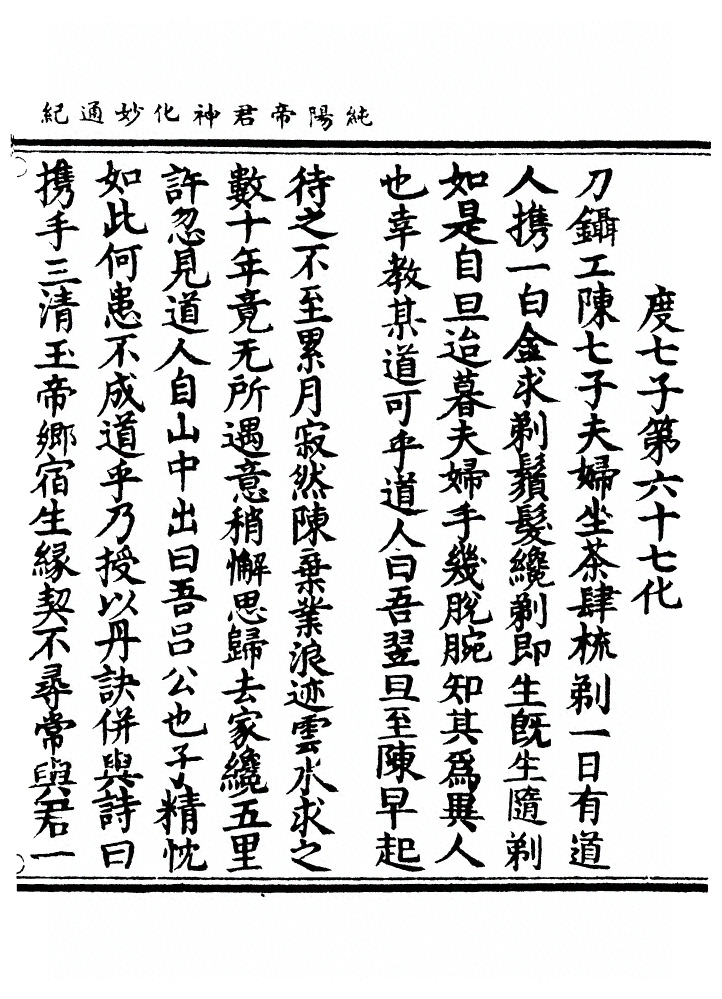 純陽帝君神化妙通紀
度七子第六十七化
刀鑷工陳七子夫婦坐茶肆梳剃一日有道
人携一白金求剃鬚髮纔剃即生旣生隨剃
如是自旦迨暮夫婦手幾脫腕知其爲異人
也幸教某道可乎道人曰吾翌旦至陳早起
待之不至累月寂然陳棄業浪迹雲水求之
數十年竟无所遇意稍懈思歸去家纔五里
許忽見道人自山中出曰吾吕公也子精忱
如此何患不成道乎乃授以丹訣併與詩曰
携手三清玉帝鄉宿生緣契不尋常與君一